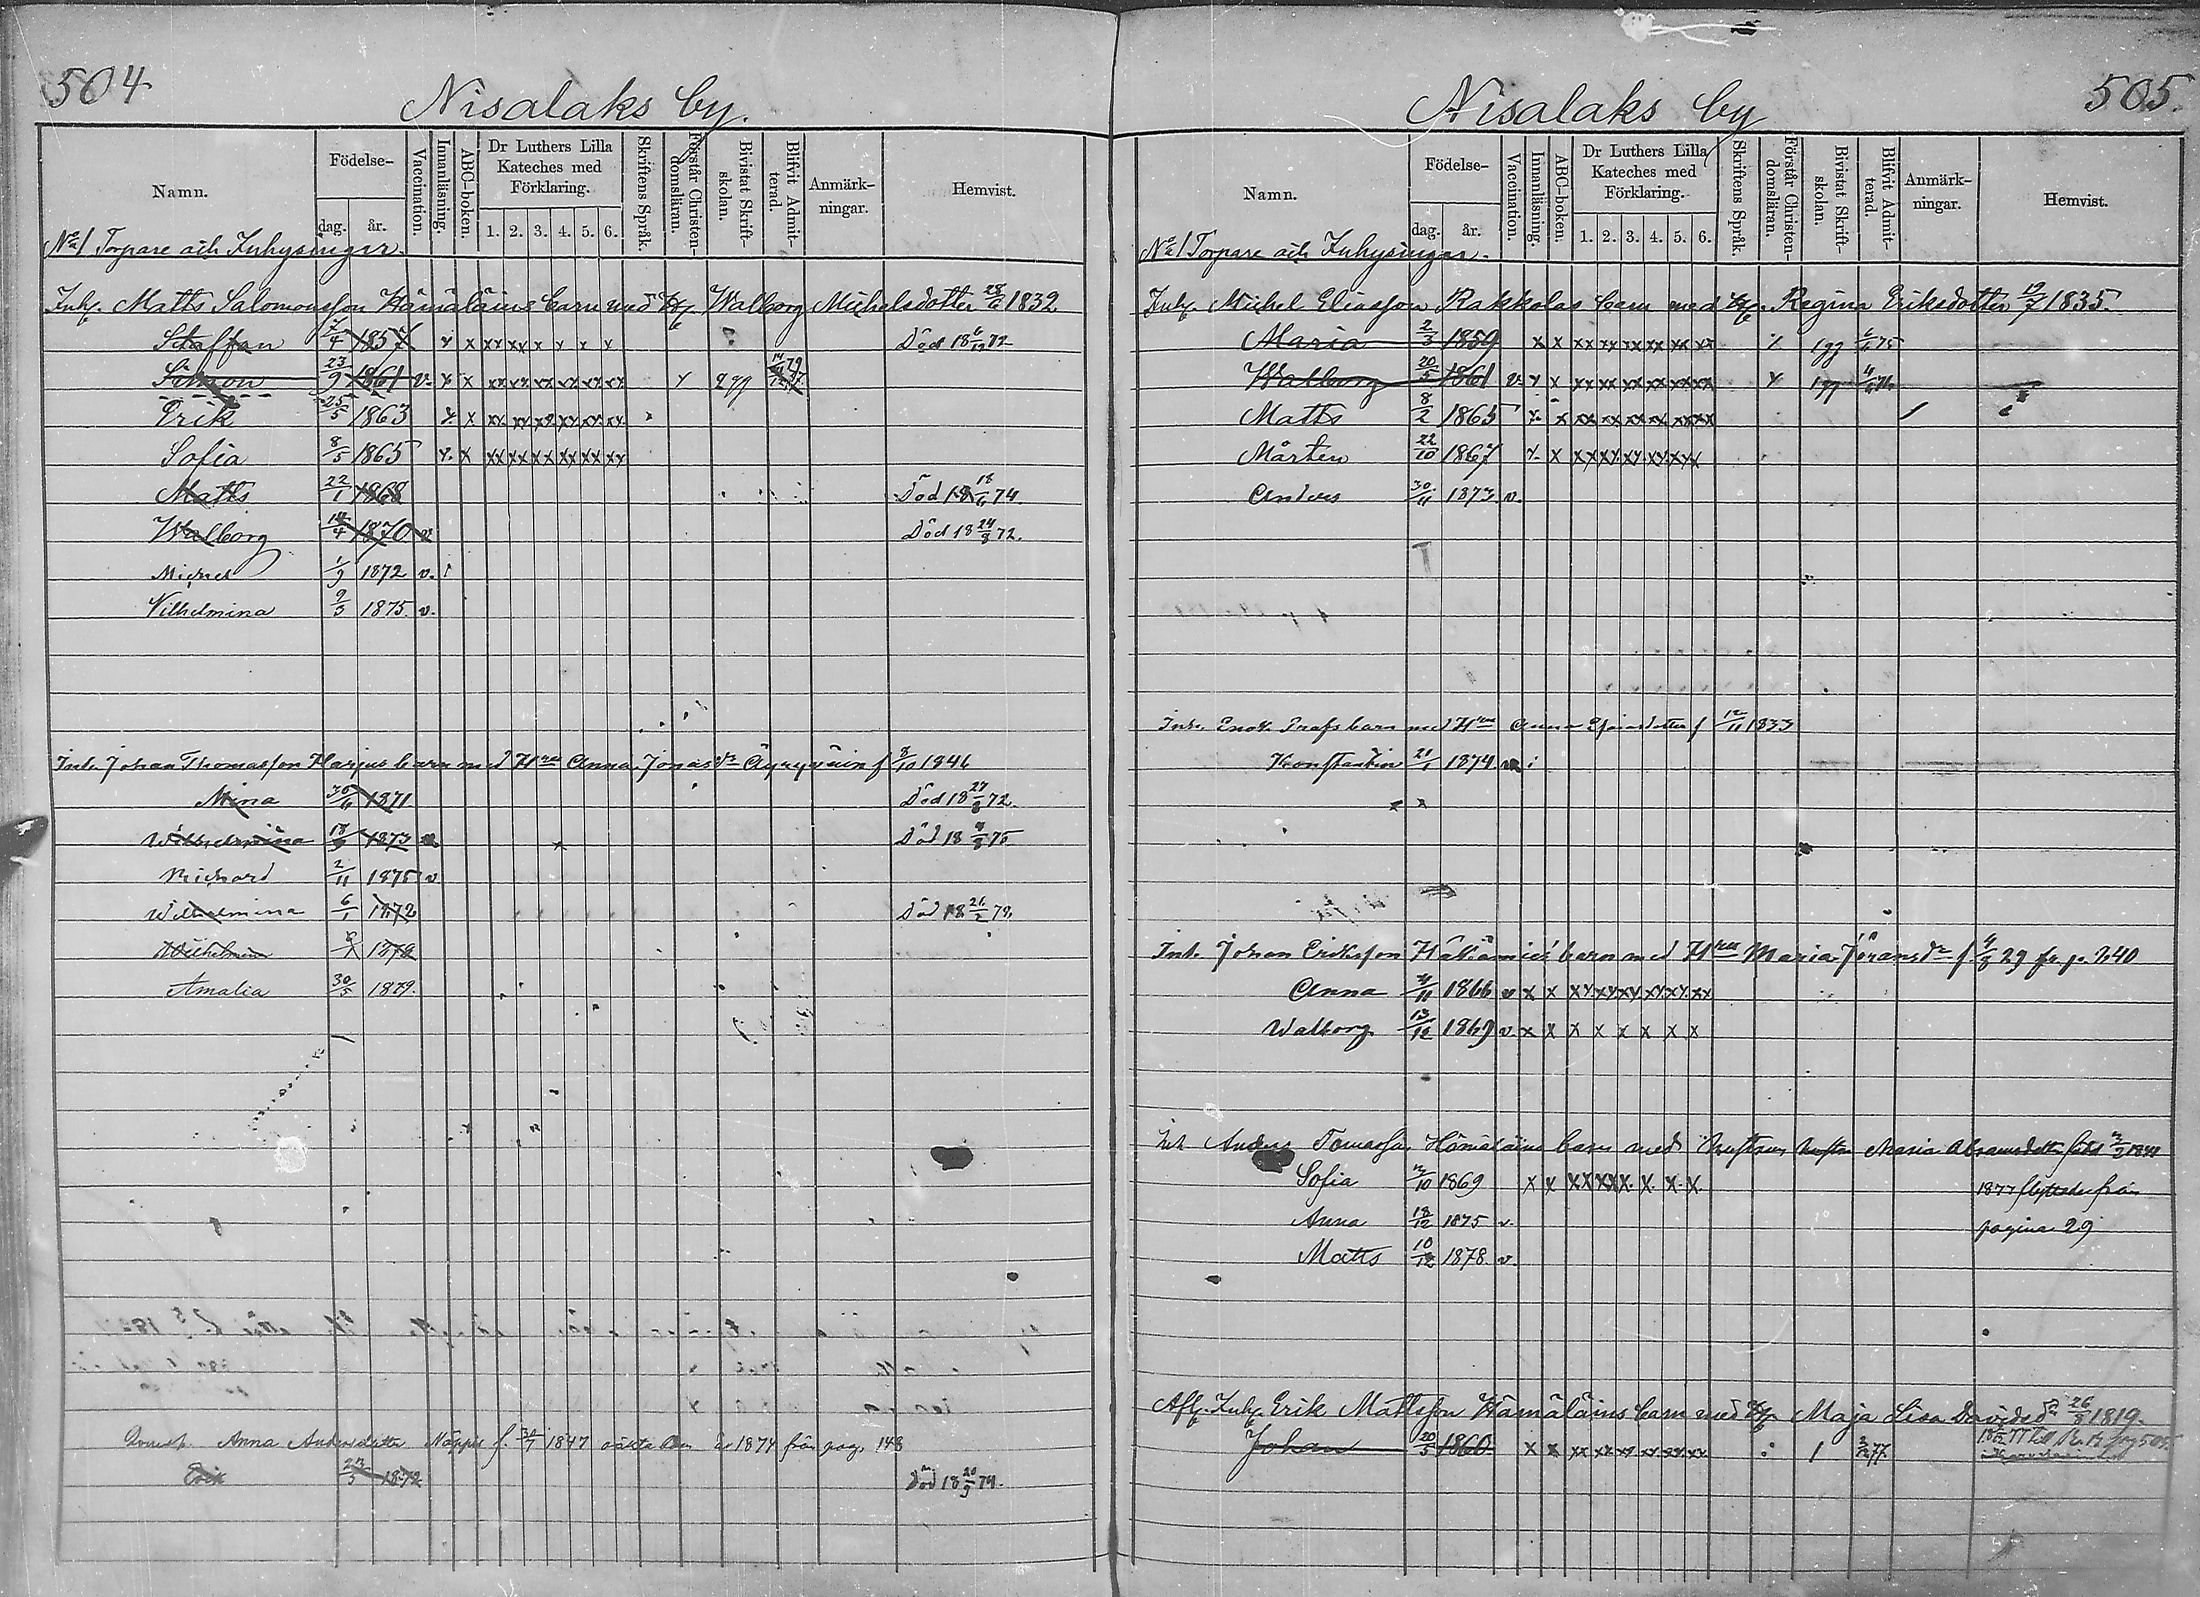 504.
Nisalaks by.
Namn. Födelse- dag. år. Vaccination. Innanläsning. ABC-boken. Dr Luthers Lilla Kateches med Förklaring. 1. 2. 3. 4. 5. 6. Skriftens Språk. Förstår Christen-domsläran. Bivistat Skrift-skolan. Blifvit Admit-terad. Anmärk-ningar. Hemvist.
No 1 Torpare och Inhysingar.
Inh. Matts Salomonsson Hämäläins barn med Walborg Michelsdotter 28/6 1832
Staffan 7/4 1857 x x xx xx x x x x Död 18 6/12 72
Simon 23/9 1861 v. x x xx xx xx xx xx xx x
Erik 25/5 1863 x x xx xx xx xx xx xx
Sofia 8/5 1865 x x xx xx xx xx xx xx
Matts 22/1 1868 Död 18 18/6 74.
Walborg 14/4 1870 v Död 18 24/8 72.
Michel 1/9 1872 v.
Vilhelmina 9/3 1875 v.
Inh. Johan Thomasson Harjus barn med Anna Jonas Äyräväin f 8/10 1846
Mina 30/6 1871 Död 18 27/8 72.
Wilhelmina 18/9 1873 Död 18 9/8 75
Richard 2/11 1875 v
Wilhelmina 6/1 1872 Död 18 21/2 78
Wilhelmina 1878
Amalia 30/5 1879.
Anna Andersdotter Näppis f. 1847 1874 från pag. 148
Erik 23/5 1872 Död 18 20/9 74.
505.
Nisalaks by
Namn. Födelse- dag. år. Vaccination. Innanläsning. ABC-boken. Dr Luthers Lilla Kateches med Förklaring. 1. 2. 3. 4. 5. 6. Skriftens Språk. Förstår Christen-domsläran. Bivistat Skrift-skolan. Blifvit Admit-terad. Anmärk-ningar. Hemvist.
No 1 Torpare och Inhysingar.
Inh. Michel Eliasson Rakkolas barn med Regina Eriksdotter 19/7 1835.
Maria 2/3 1859 x x xx xx xx xx xx xx
Walborg 20/5 1861 v. x x xx xx xx xx xx xx x
Matts 8/2 1865 x x xx xx xx xx xx xx
Mårten 22/10 1867 x x xx xx xx xx xx x
Anders 30/11 1873 v.
Inh. Enok barn med Anna f 12/11 1833
Konstantin 21/1 1874
Inh. Johan Eriksson barn med Maria Jörans f. 4/8 29 fr. p. 240
Anna 1866 v x x xx xx xx xx xx xx
Walborg 13/12 1869 v x x x x x x x x
Inh Anders Tomasson Hämäläins barn med Hustrun Maria Abramsdotter född
Sofia 1869 x x xx xx x. x. x. x 1877 flyttade från
Anna 18/12 1875 v. pagina 29
Matts 10/12 1878 v.
Afl. Inh. Erik Mattsson Hämäläins barn med Maja Lisa Davidsd 26/8 1819.
Johan 20/5 1860 x x xx xx xx xx xx xx 1 77.